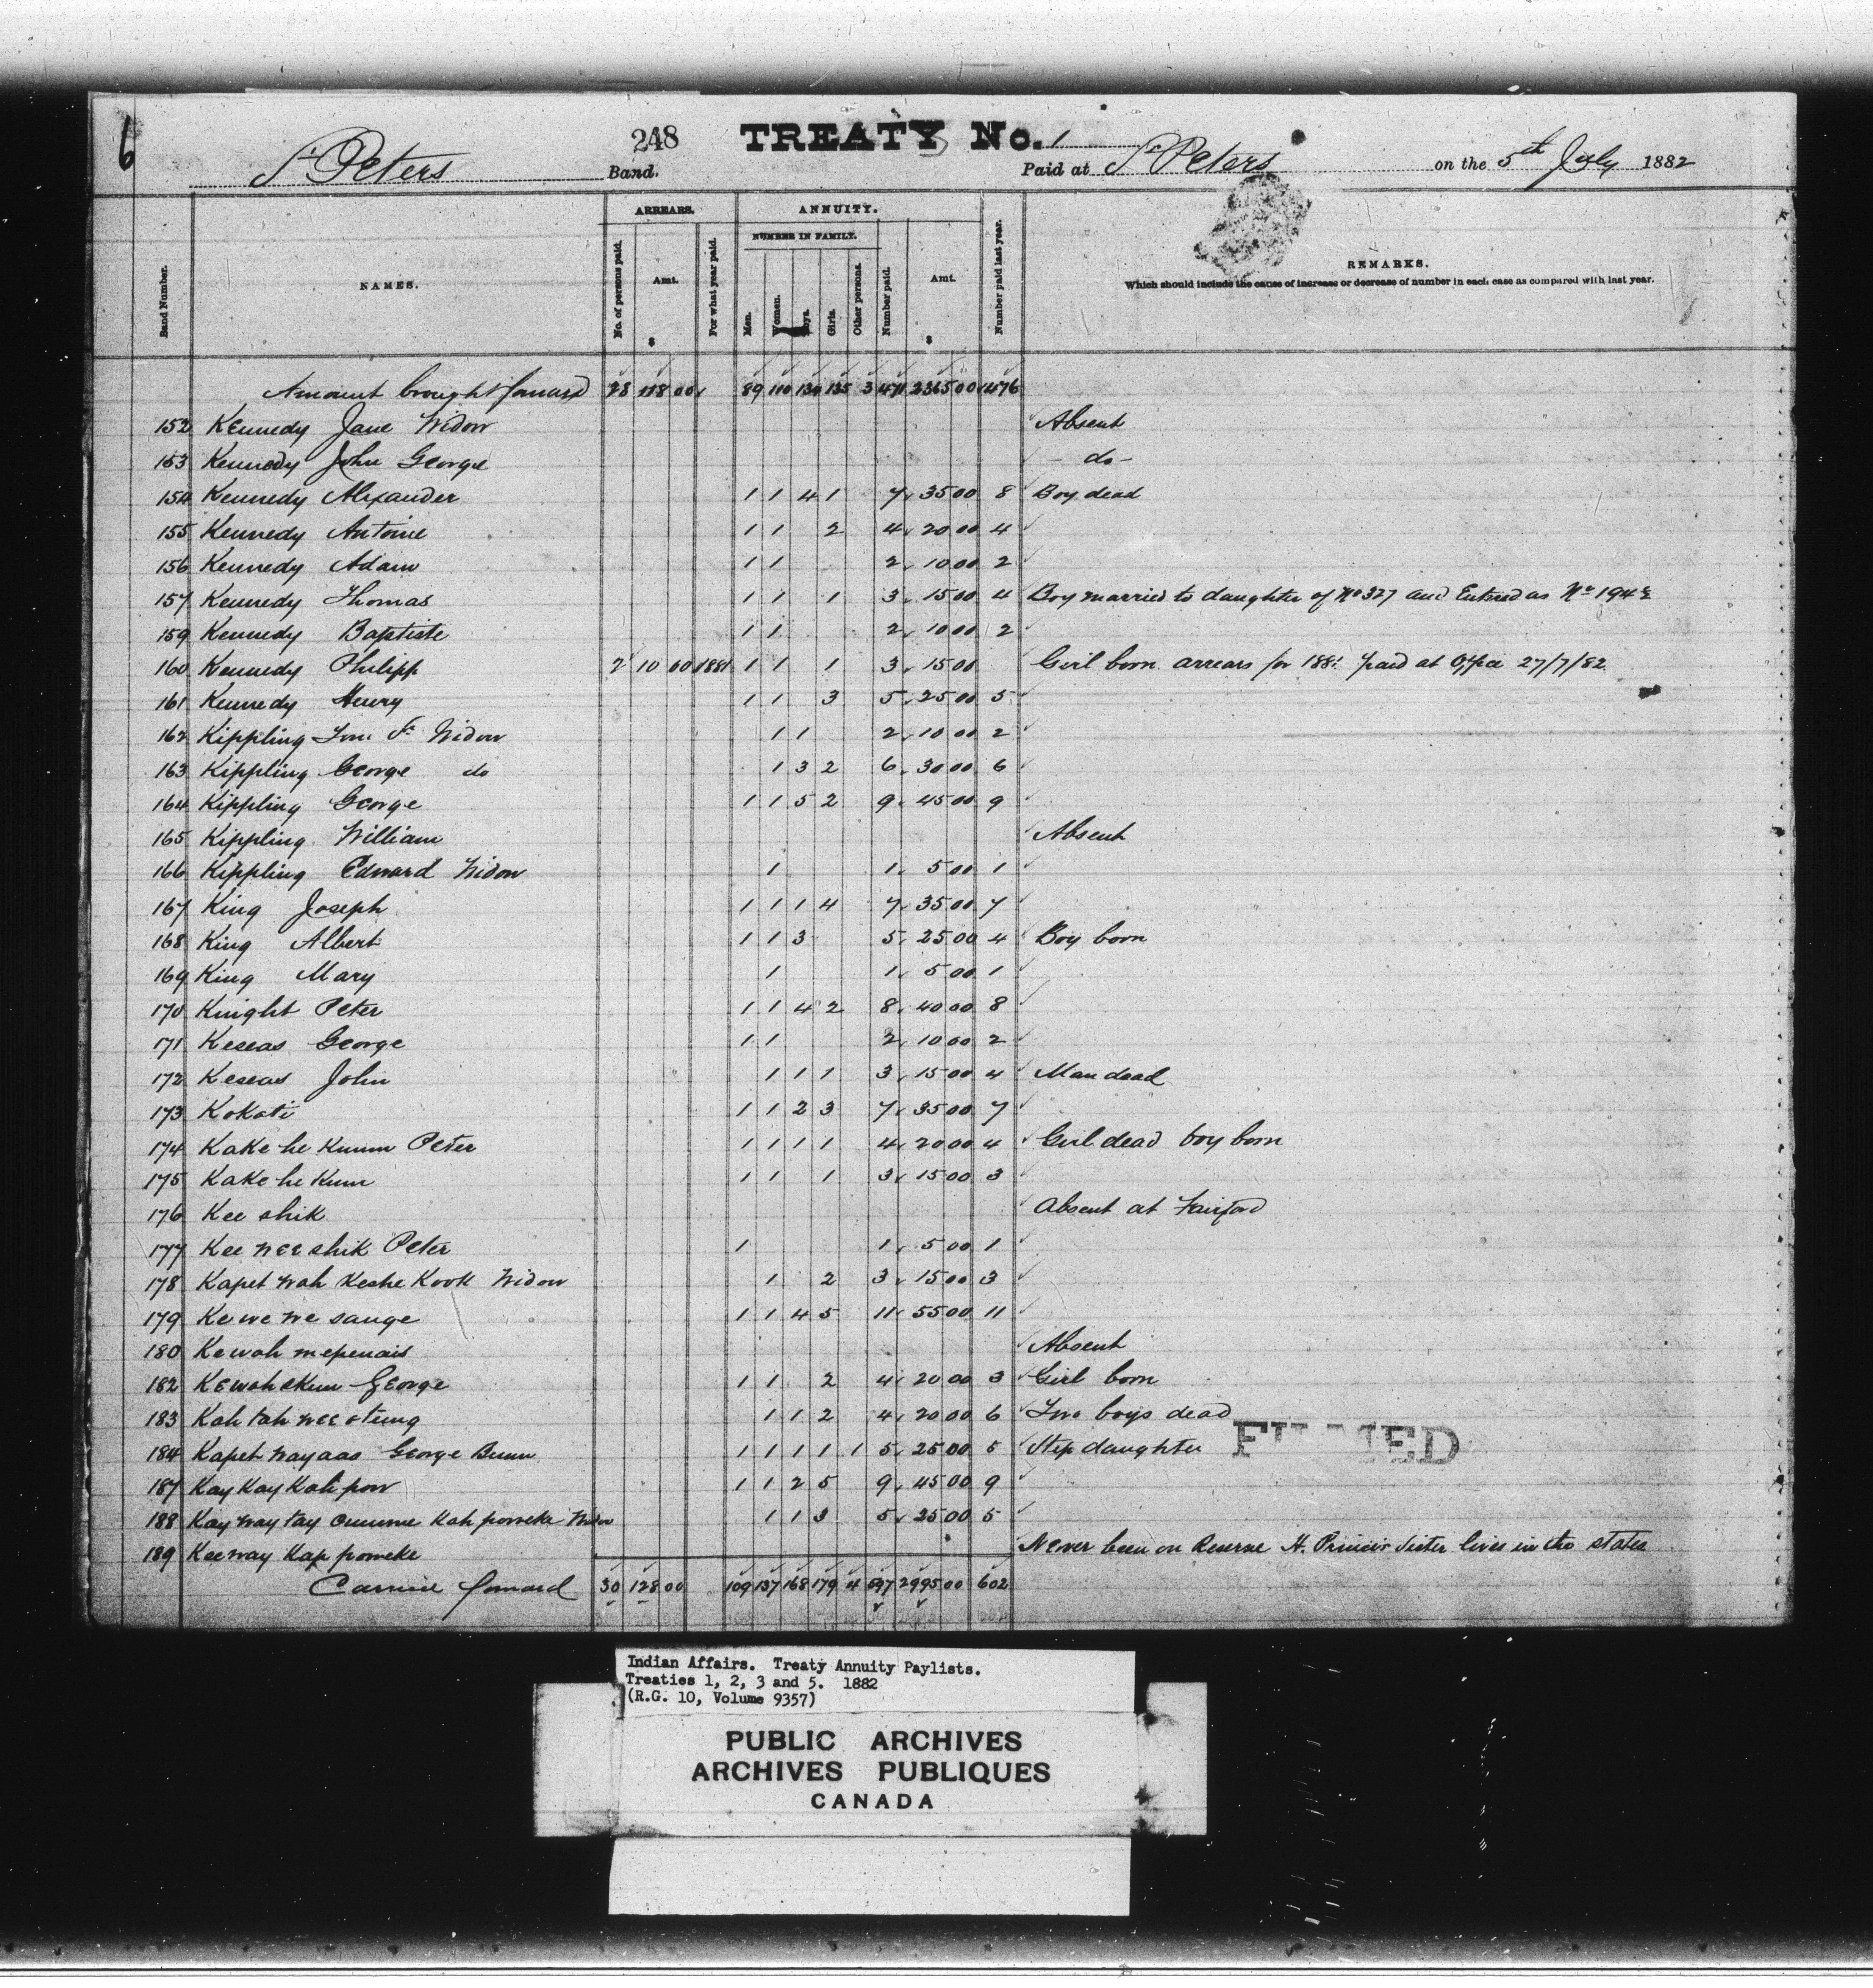 6
248 TREATY No. 1
St Peters Band. Paid at St Peters on the 5th July 1882
ARREARS. ANNUITY.
NUMBER IN FAMILY.
Band Number. NAMES. No. of persons paid. Amt. $ For what year paid. Men. Women. Boys. Girls. Other persons. Number paid. Amt. $ Number paid last year. REMARKS.
Which should include the cause of increase or decrease of number in each case as compared with last year.
Amount brought forward 28 118 00 89 110 130 135 3 471 2365 00 476
152 Kennedy Jane Widow Absent
153 Kennedy John George - do -
154 Kennedy Alexander 1 1 4 1 7 35 00 8 Boy dead
155 Kennedy Antoine 1 1 2 4 20 00 4
156 Kennedy Adam 1 1 2 10 00 2
157 Kennedy Thomas 1 1 1 3 15 00 4 Boy married to daughter of No 327 and Entered as No 194½
159 Kennedy Baptiste 1 1 2 10 00 2
160 Kennedy Philipp 2 10 00 1881 1 1 1 3 15 00 Girl born arrears for 1881 paid at Office 27/7/82
161 Kennedy Henry 1 1 3 5 25 00 5
162 Kippling Tom Sr Widow 1 1 2 10 00 2
163 Kippling George do 1 3 2 6 30 00 6
164 Kippling George 1 1 5 2 9 45 00 9
165 Kippling William Absent
166 Kippling Edward Widow 1 1 5 00 1
167 King Joseph 1 1 1 4 7 35 00 7
168 King Albert 1 1 3 5 25 00 4 Boy born
169 King Mary 1 1 5 00 1
170 Knight Peter 1 1 4 2 8 40 00 8
171 Keseas George 1 1 2 10 00 2
172 Keseas John 1 1 1 3 15 00 4 Man dead
173 Kokati 1 1 2 3 7 35 00 7
174 Kake he Kumm Peter 1 1 1 1 4 20 00 4 Girl dead boy born
175 Kake he Kum 1 1 1 3 15 00 3
176 Kee shik Absent at Fairford
177 Kee wee shik Peter 1 1 5 00 1
178 Kapet wah Keshe Kook Widow 1 2 3 15 00 3
179 Ke we we sange 1 1 4 5 11 55 00 11
180 Ke wah mepenais Absent
182 Kewahekum George 1 1 2 4 20 00 3 Girl born
183 Kah tah wee oteung 1 1 2 4 20 00 6 Two boys dead
184 Kapet way aas George Bunn 1 1 1 1 1 5 25 00 5 Step daughter FILMED
187 Kay Kay Kah pow 1 1 2 5 9 45 00 9
188 Kay way tay cumme Kah poweke Widow 1 1 3 5 25 00 5
189 Kee way Kap poweke Never been on Reserve H. Princes Sister lives in the states
Carried forward 30 128 00 109 137 168 179 4 597 2995 00 602
Indian Affairs. Treaty Annuity Paylists.
Treaties 1, 2, 3 and 5. 1882
(R.G. 10, Volume 9357)
PUBLIC ARCHIVES
ARCHIVES PUBLIQUES
CANADA